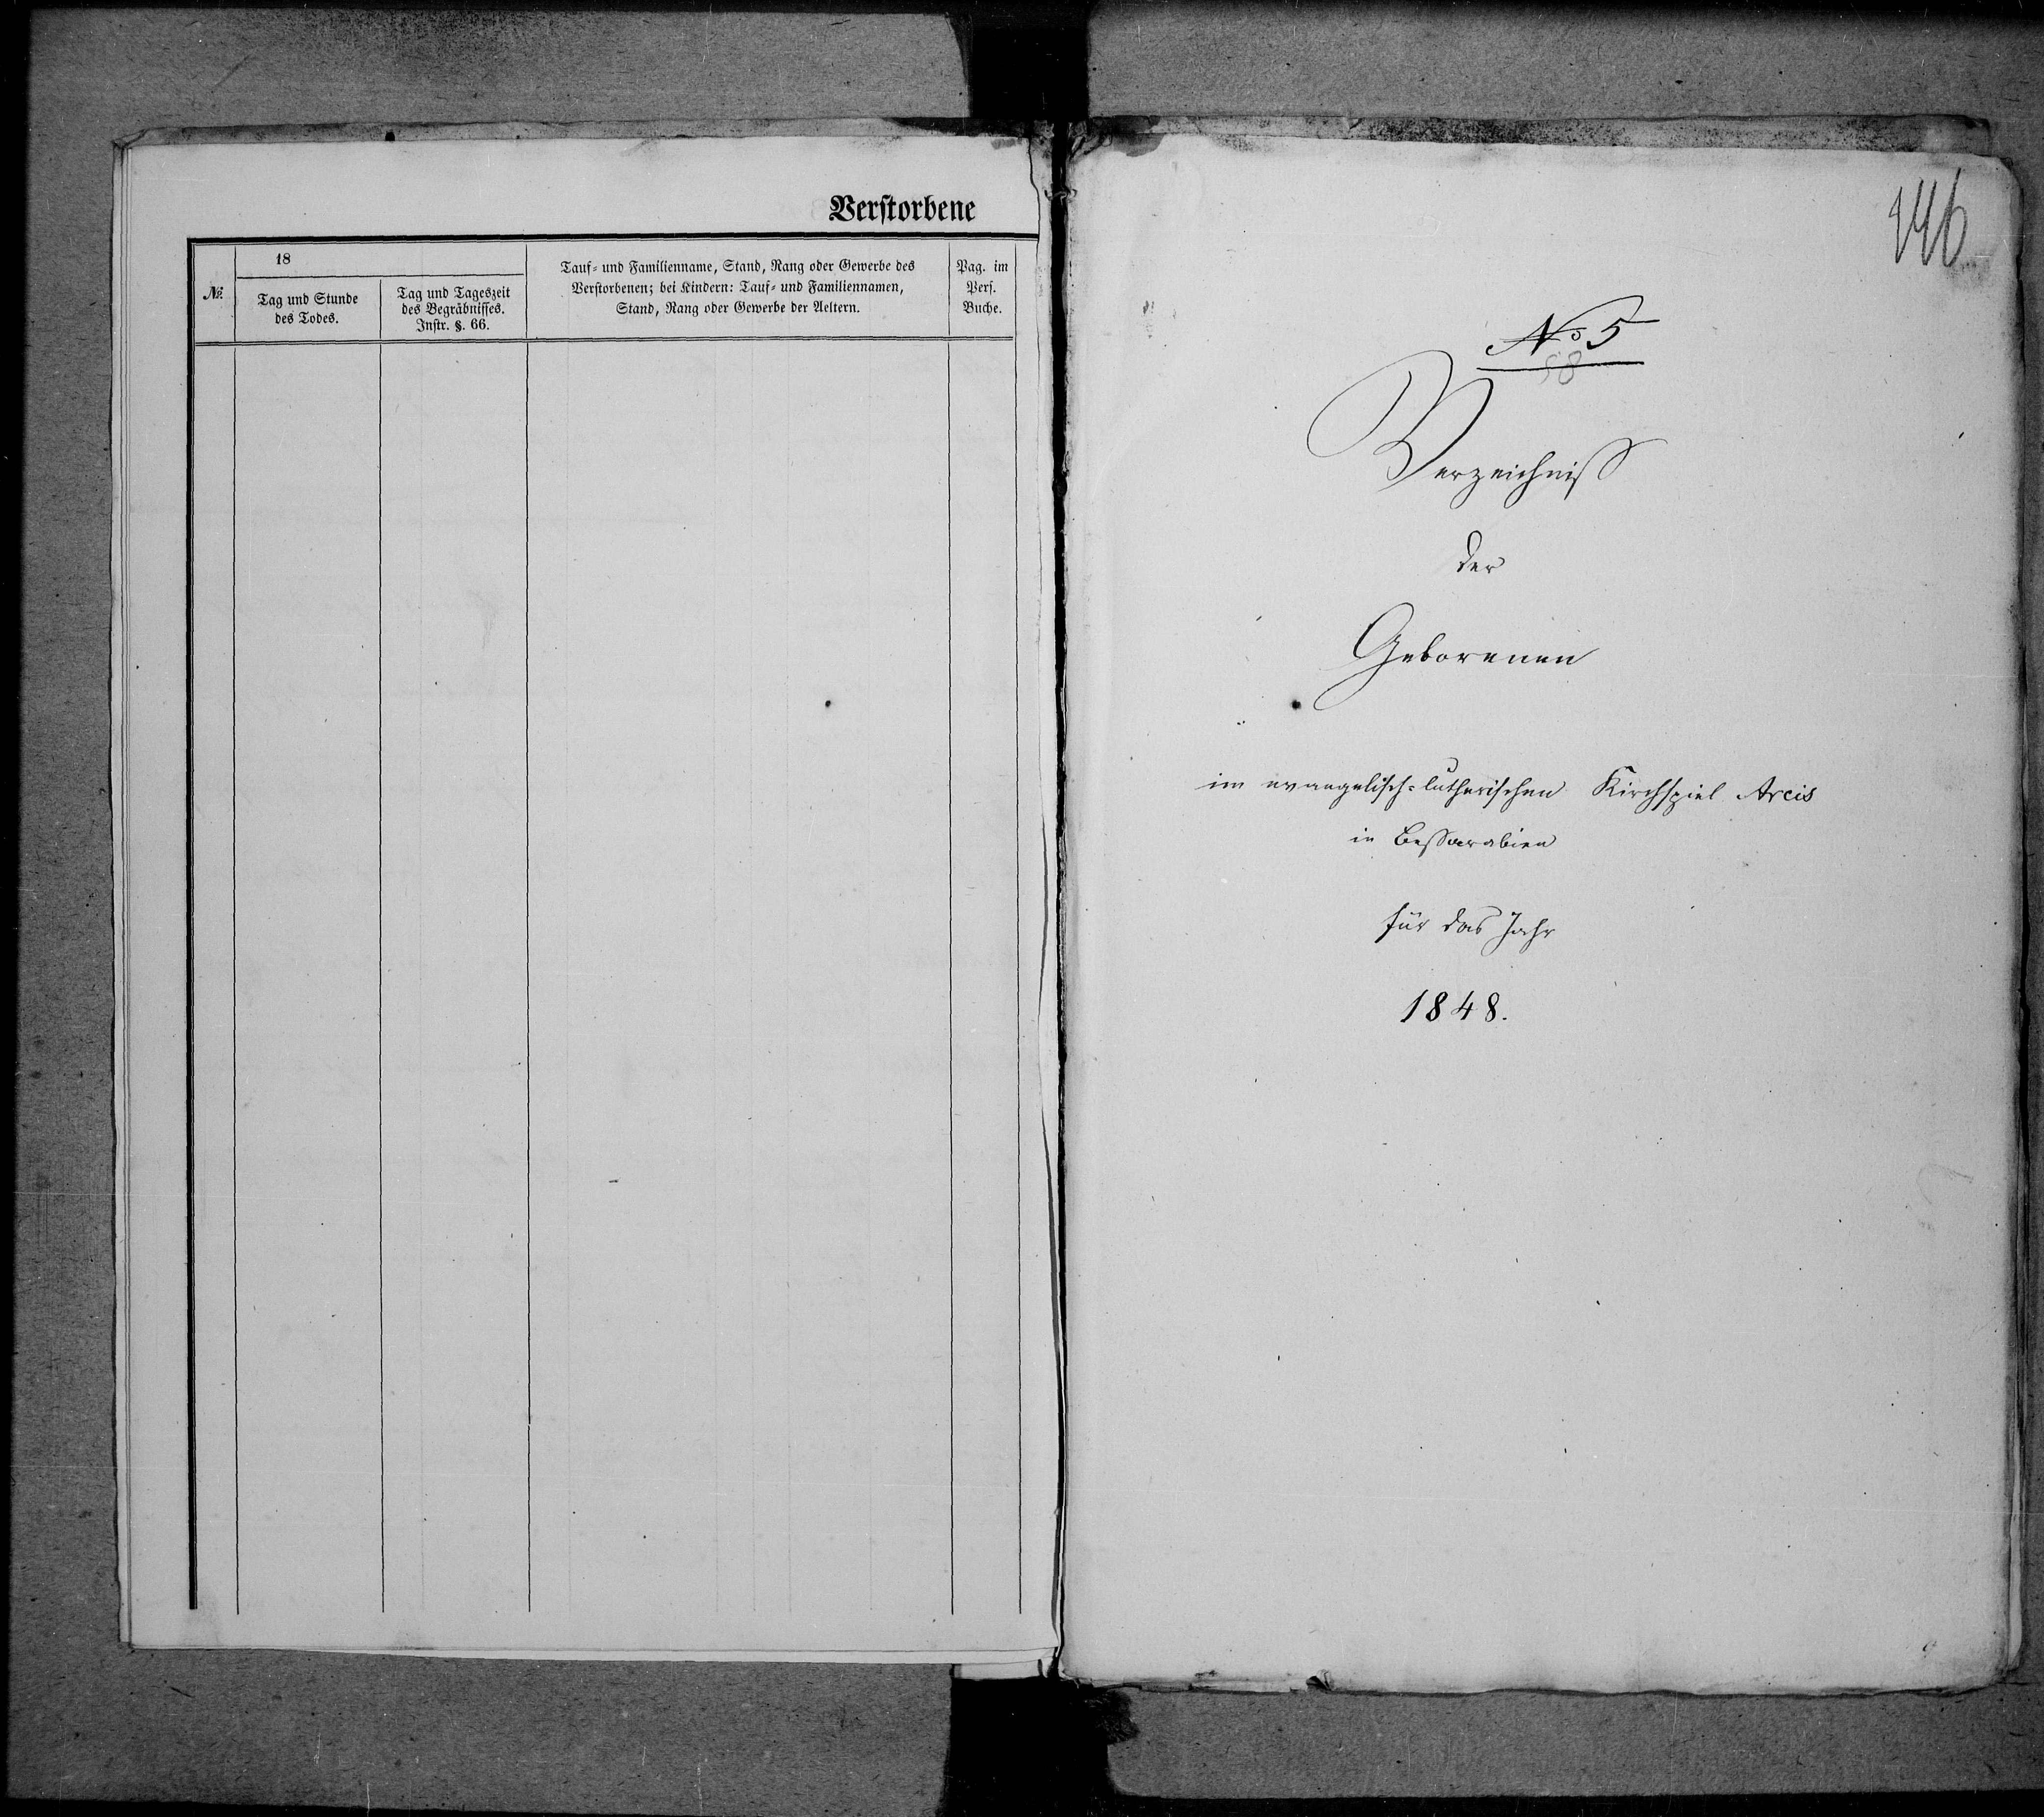 Verstorbene
№.
18
Tag und Stunde
des Todes.
Tag und Tageszeit
des Begräbnisses.
Instr. §. 66.
Tauf- und Familienname, Stand, Rang oder Gewerbe des
Verstorbenen; bei Kindern: Tauf- und Familiennamen,
Stand, Rang oder Gewerbe der Aeltern.
Pag. im
Pers.
Buche.
146
No 5
58
Verzeichniß
der
Geborenen
im evangelisch-lutherischen Kirchspiel Arcis
in Bessarabien
für das Jahr
1848.